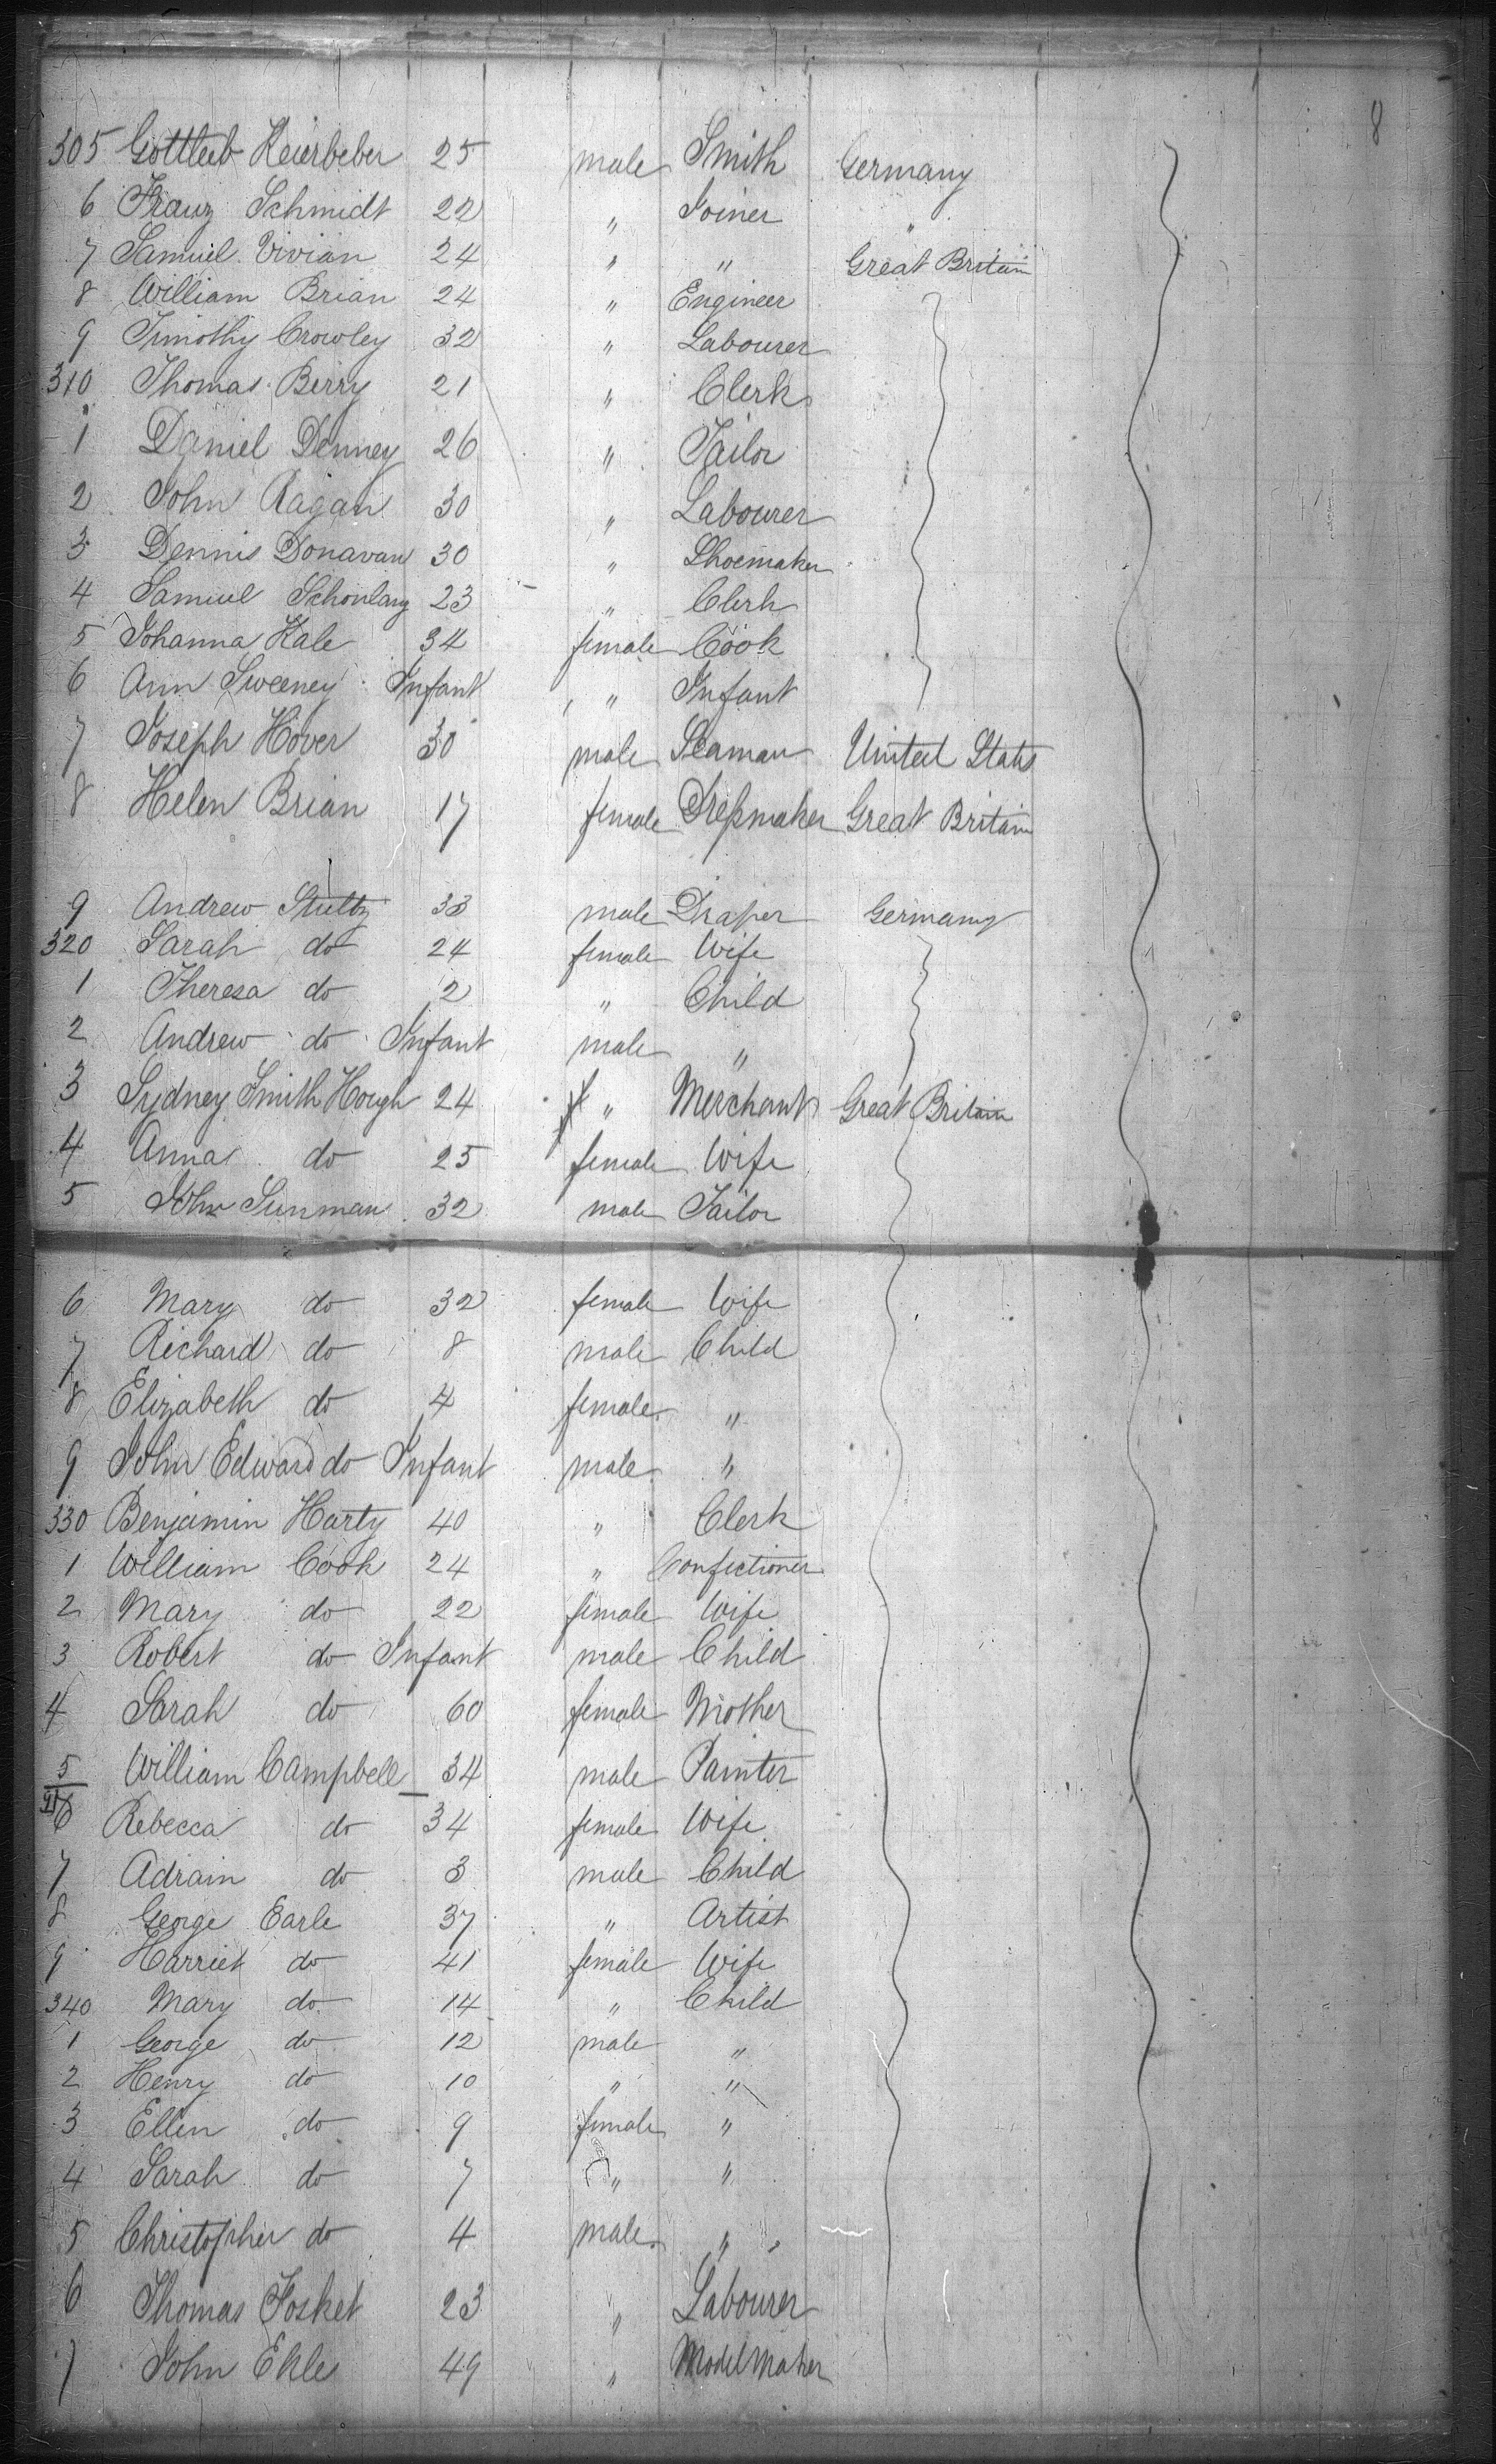 8
305 Gottleeb Keierbeber 25 male Smith Germany
6 Franz Schmidt 22 " Joiner "
7 Samuel Vivian 24 " " Great Britain
8 William Brian 24 " Engineer
9 Timothy Crowley 32 " Labourer
310 Thomas Berry 21 " Clerk
1 Daniel Denney 26 " Tailor
2 John Ragan 30 " Labourer
3 Dennis Donavan 30 " Shoemaker
4 Samuel 23 " Clerk
5 Johanna Kale 34 female Cook
6 Ann Sweeney Infant " Infant
7 Joseph Hover 30 male Seaman United States
8 Helen Brian 17 female Dressmaker Great Britain
9 Andrew Stultz 33 male Draper Germany
320 Sarah do 24 female Wife
1 Theresa do 2 " Child
2 Andrew do Infant male "
3 Sydney Smith Hough 24 " Merchant Great Britain
4 Anna do 25 female Wife
5 John Sunman 32 male Tailor
6 Mary do 32 female Wife
7 Richard do 8 male Child
8 Elizabeth do 4 female "
9 John Edward do Infant male "
330 Benjamin Harty 40 " Clerk
1 William Cook 24 " Confectioner
2 Mary do 22 female Wife
3 Robert do Infant male Child
4 Sarah do 60 female Mother
5 William Campbell 34 male Painter
6 Rebecca do 34 female Wife
7 Adrain do 3 male Child
8 George Earle 37 " Artist
9 Harriet do 41 female Wife
340 Mary do 14 " Child
1 George do 12 male "
2 Henry do 10 " "
3 Ellen do 9 female "
4 Sarah do 7 " "
5 Christopher do 4 male "
6 Thomas Fosket 23 " Labourer
7 John Ekle 49 " Modelmaker